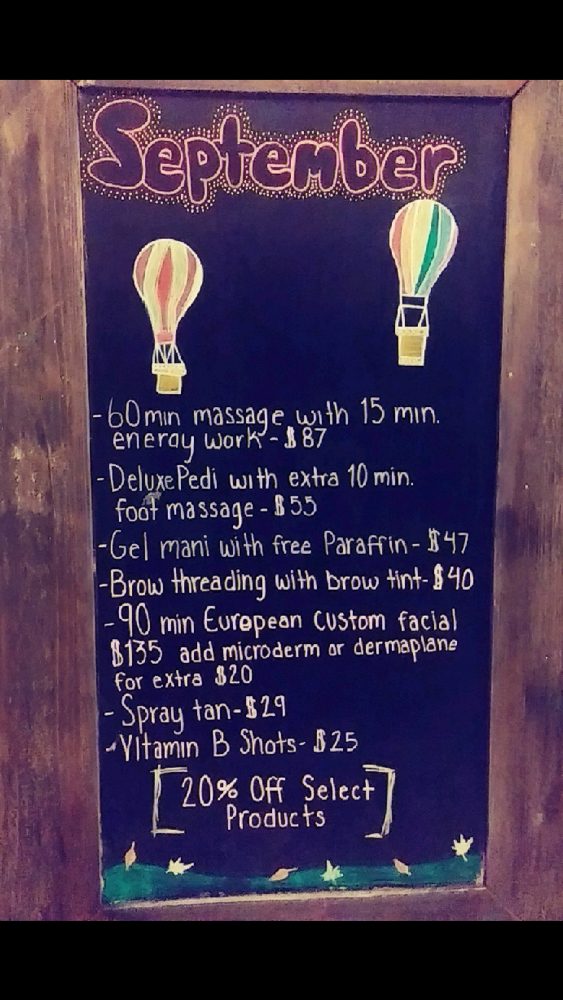 September
- 60min massage with 15 min.
energy work - $87
- Deluxe Pedi with extra 10 min.
foot massage - $55
- Gel mani with free Paraffin - $47
- Brow threading with brow tint - $40
- 90 min European Custom facial
$135 add microderm or dermaplane
for extra $20
- Spray tan - $29
- Vitamin B Shots - $25
[20% Off Select
Products]